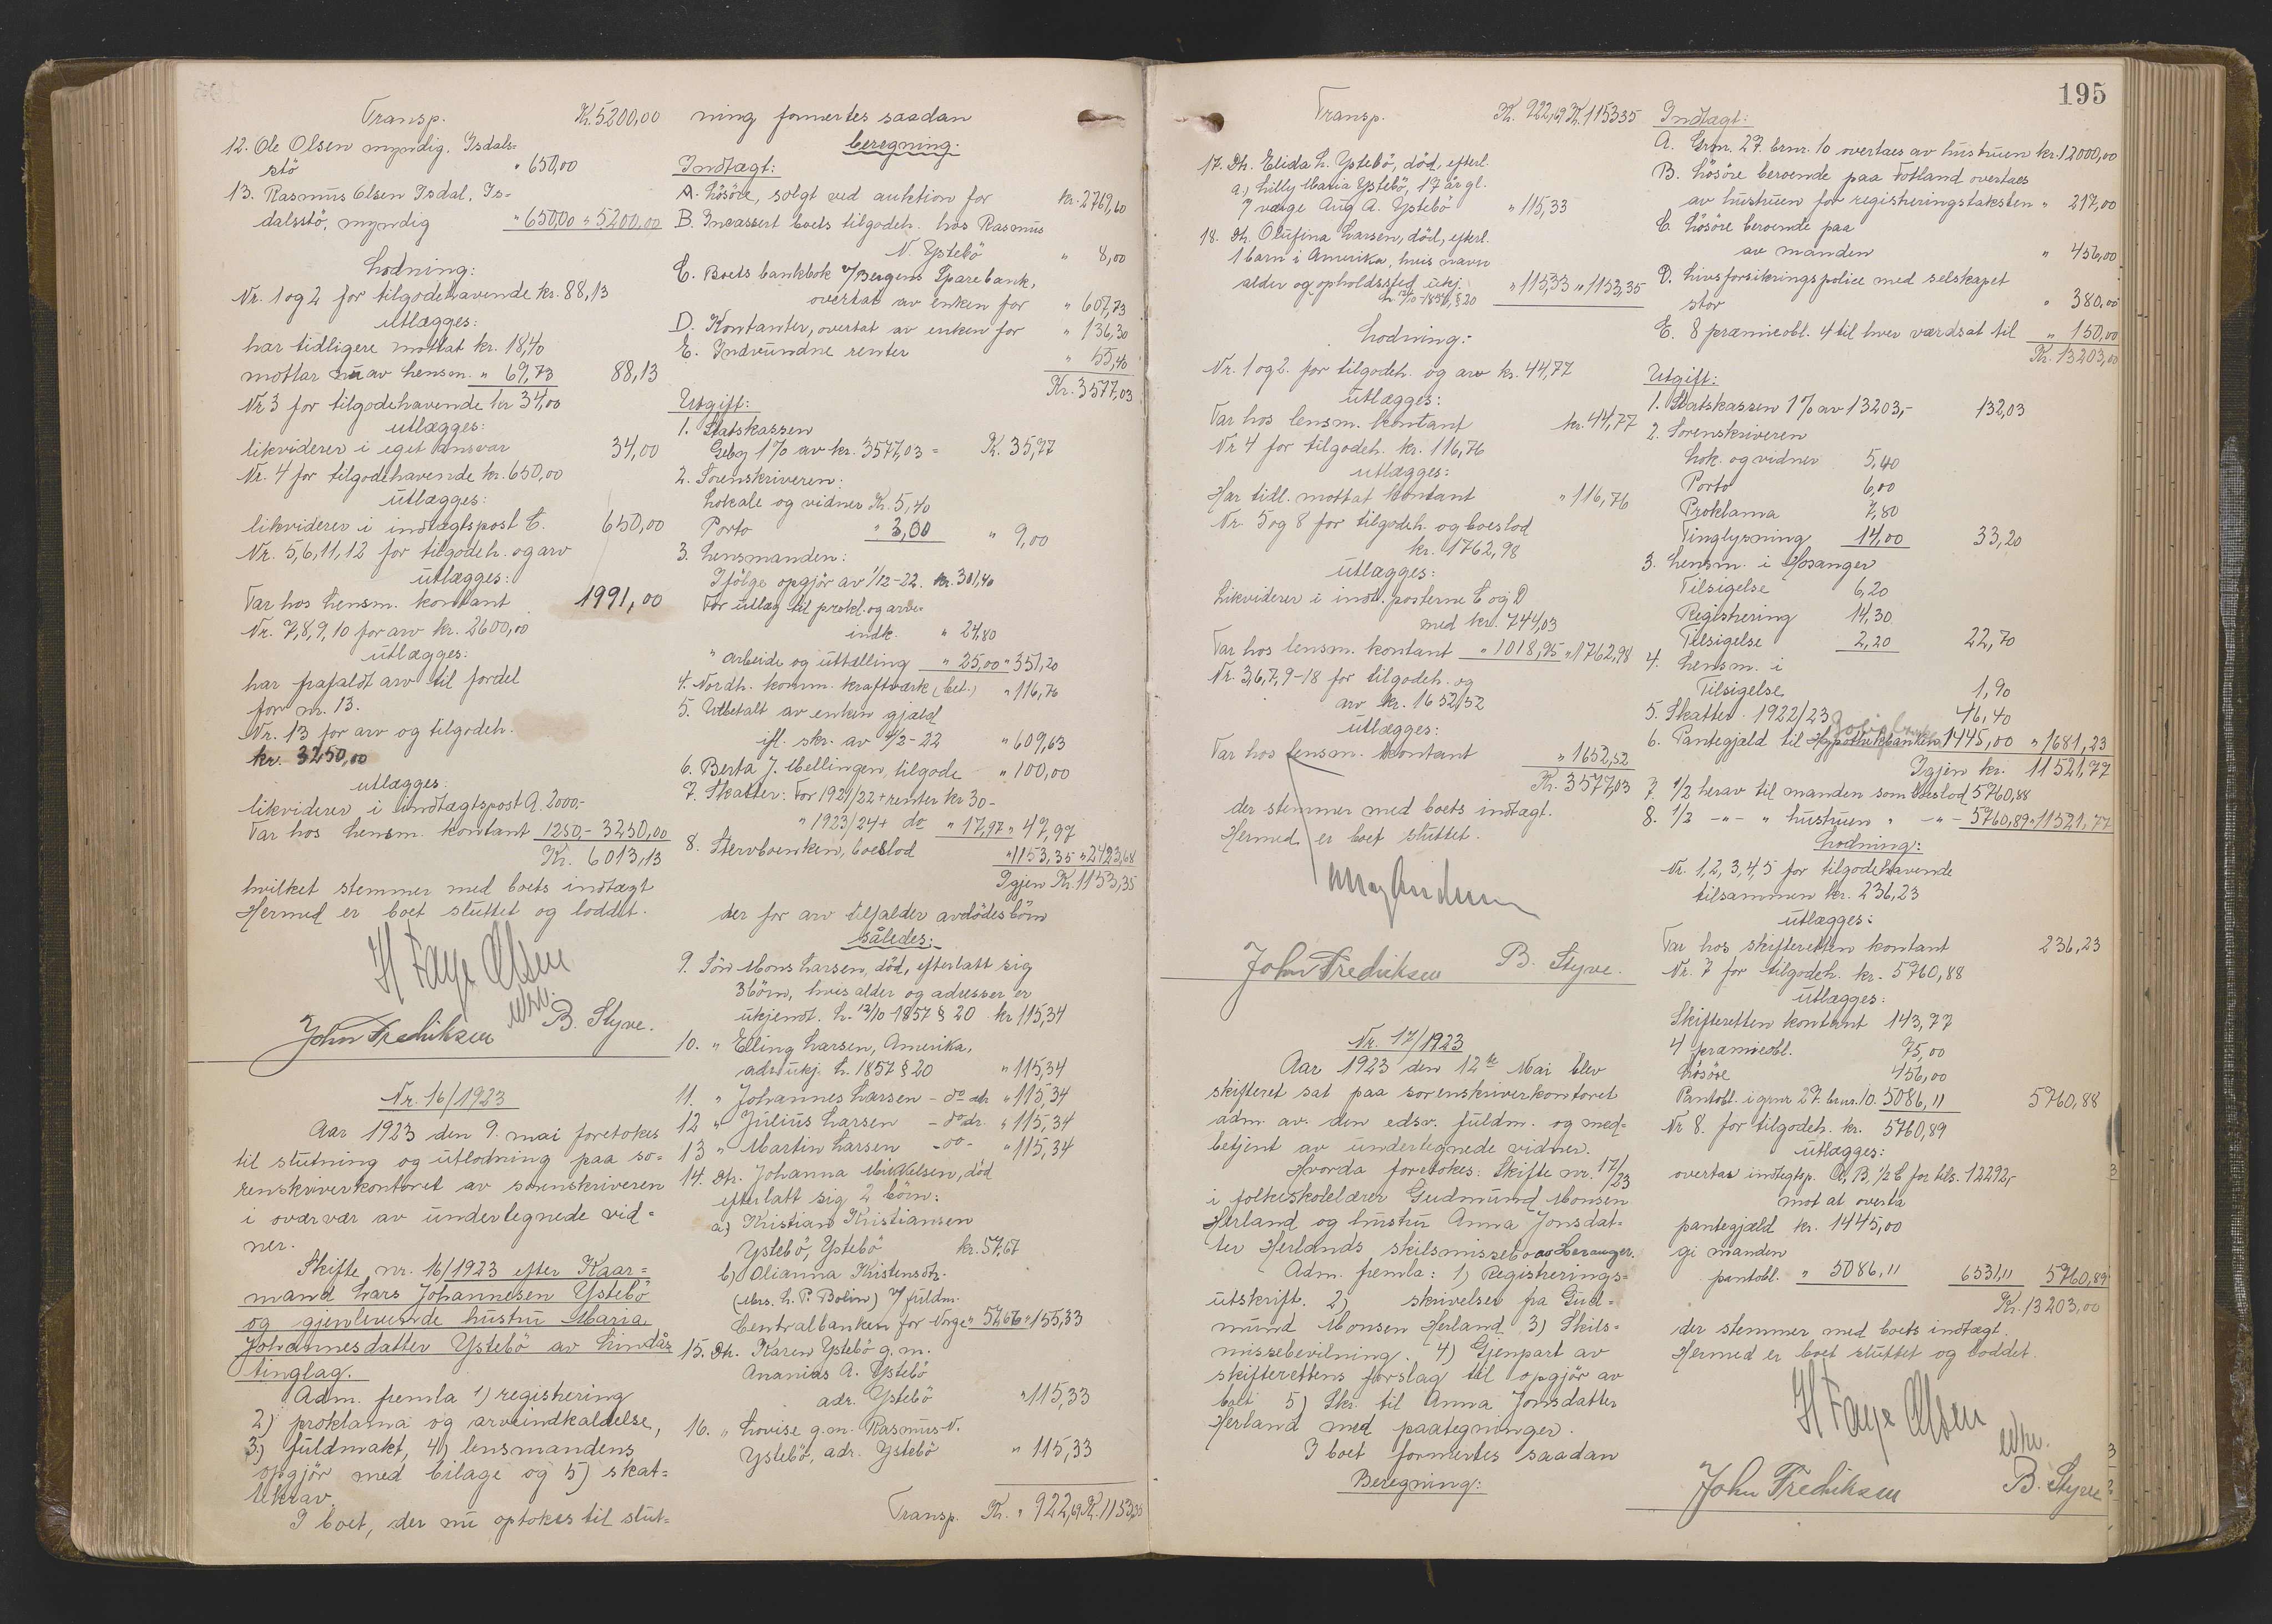 Transp. Kr. 5200,00
12. Ole Olsen myndig, Isdals=
stö " 650,00
13. Rasmus Olsen Isdal, Is=
dalsstö, myndig " 650,00 " 5200,00
Lodning:
Nr. 1 og 2 for tilgodehavende kr. 88,13
utlægges:
har tidligere mottat kr. 18,40
mottar nu av lensm. " 69,73 88,13
Nr 3 for tilgodehavende kr 34,00
utlægges:
likviderer i eget ansvar 34,00
Nr. 4 for tilgodehavende kr. 650,00
utlægges:
likviderer i indtægtspost C. 650,00
Nr. 5,6,11,12 for tilgodeh. og arv
utlægges:
Var hos Lensm. kontant 1991,00
Nr. 7,8,9,10 for arv kr. 2600,00
utlægges:
har frafaldt arv til fordel
for nr. 13.
Nr. 13 for arv og tilgodeh.
kr. 3250,00
utlægges:
likviderer i indtægtspost A. 2000,-
Var hos Lensm. kontant 1250,- 3250,00
Kr. 6013,13
hvilket stemmer med boets indtægt
Hermed er boet sluttet og loddet.
H Faye Olsen
edsv.
John Fredriksen B. Styve.
Nr. 16/1923
Aar 1923 den 9. mai foretokes
til slutning og utlodning paa so=
renskriverkontoret av sorenskriveren
i overvær av undertegnede vid=
ner.
Skifte nr. 16/1923 efter Kaar=
mand Lars Johannesen Ystebö
og gjenlevende hustru Maria
Johannesdatter Ystebö av Lindås
tinglag.
Adm. fremla 1) registrering
2) proklama og arveindkaldelse,
3) fuldmakt, 4) lensmandens
opgjör med bilage og 5) skat=
tekrav.
I boet, der nu optokes til slut=
ning formertes saadan
beregning.
Indtægt:
A. Lösöre, solgt ved auktion for kr. 2769,60
B. Incassert boets tilgodeh. hos Rasmus
N. Ystebö " 8,00
C. Boets bankbok i/Bergens Sparebank,
overtat av enken for " 607,73
D. Kontanter, overtat av enken for " 136,30
E. Indvundne renter " 55,40
Kr. 3577,03
Utgift:
1. Statskassen
Geby 1% av kr. 3577,03 = K. 35,77
2. Sorenskriveren:
Lokale og vidner K. 5,40
Porto " 3,00 " 9,00
3. Lensmanden:
Ifölge opgjör av 1/12-22. kr. 301,40
For utlæg til prokl. og arve-
indk. " 24,80
" arbeide og uttælling " 25,00 " 351,20
4. Nordh. komm. kraftværk (bet.) " 116,76
5. Utbetalt av enken gjæld
ifl. skr. av 4/3-22 " 609,63
6. Berta J. Mellingen, tilgode " 100,00
7. Skatter: For 1921/22 + renter kr 30-
" 1923/24 + do " 17,97 " 47,97
8. Stervboenken, boeslod " 1153,35 " 2423,68
Igjen Kr. 1153,35
der for arv tilfalder avdödes börn
således:
9. Sön Mons Larsen, död, efterlatt sig
3 börn, hvis alder og adresser er
ukjendt. L. 12/10 1857 § 20 kr 115,34
10. " Elling Larsen, Amerika,
adr. ukj. L. 1857 § 20 " 115,34
11. " Johannes Larsen - do adr " 115,34
12 " Julius Larsen - do adr. " 115,34
13 " Martin Larsen - oo - " 115,34
14. Dtr. Johanna Mikkelsen, död
efterlatt sig 2 börn:
a) Kristian Kristiansen
Ystebö, Ystebö kr. 57,67
b) Olianna Kistensdtr.
(Mrs. L. P. Bolin) i/ fuldm.
Centralbanken for Norge " 57,66 " 155,33
15. Dtr. Karen Ystebö g. m.
Ananias A. Ystebö
adr. Ystebö " 115,33
16. " Lovise g. m. Rasmus N.
Ystebö, adr. Ystebö " 115,33
Transp. Kr. " 922,69 Kr. 1153,35
195
Transp. Kr. 922,69 Kr. 1153 35
17. Dtr. Elida L. Ystebö, död, efterl.
a.) Lilly Maria Ystebö, 17 år gl.
i verge Aug A. Ystebö " 115,33
18. Dtr. Olufina Larsen, död, efterl.
1 barn i Amerika, hvis navn
alder og opholdssted ukj. " 115,33 " 1153,35
L. 12/10 1857, § 20
Lodning:
Nr. 1 og 2. for tilgodeh. og arv kr. 44,77
utlægges:
Var hos lensm. kontant kr. 44,77
Nr 4 for tilgodeh. kr. 116,76
utlægges:
Har tidl. mottat kontant " 116,76
Nr. 5 og 8 for tilgodeh. og boeslod
kr. 1762,98
utlægges:
Likviderer i indt. posterne C og D
med kr. 744,03
Var hos lensm. kontant " 1018,95 " 1762,98
Nr. 3,6,7,9-18 for tilgodeh. og
arv kr. 1652,52
utlægges:
Var hos lensm. kontant " 1652,52
Kr. 3577,03
der stemmer med boets indtægt.
Hermed er boet sluttet.
John Fredriksen B. Styve.
Nr. 17/1923
Aar 1923 den 12te Mai blev
skifteret sat paa sorenskriverkontoret
adm. av. den edsv. fuldm. og med=
betjent av undertegnede vidner.
Hvorda foretokes: Skifte nr. 17/23
i folkeskolelærer Gudmund Monsen
Herland og hustru Anna Jonsdat=
ter Herlands skilsmissebo av Hosanger.
Adm. fremla: 1) Registrerings=
utskrift. 2) skrivelser fra Gud=
mund Monsen Herland 3) Skils=
missebevilning. 4) Gjenpart av
skifterettens forslag til opgjör av
boet 5) Skr. til Anna Jonsdatter
Herland med paategninger.
I boet formertes saadan
Beregning:
Indtægt:
A. Grnr. 27. brnr. 10 overtaes av hustruen kr. 12000,00
B. Lösöre beroende paa Fotland overtaes
av hustruen for registreringstaksten " 217,00
C. Lösöre beroende paa
av manden " 456,00
D. Livsforsikringspolice med selskapet
stor " 380,00
E. 8 præmieobl. 4 til hver værdsat til " 150,00
Kr. 13203,00
Utgift:
1. Statskassen 1% av 13203,- 132,03
2. Sorenskriveren
Lok. og vidner 5,40
Porto 6,00
Proklama 7,80
Tinglysning 14,00 33,20
3. Lensm. i Hosanger
Tilsigelse 6,20
Registrering 14,30
Tilsigelse 2,20 22,70
4. Lensm. i
Tilsigelse 1,90
5. Skatter 1922/23 46,40
6. Pantegjæld til Hypothekbanken 1445,00 " 1681,23
Igjen kr. 11521,77
7. 1/2 herav til manden som boeslod 5760,88
8. 1/2 -"- " hustruen " -"- 5760,89 " 11521,77
Lodning:
Nr. 1,2,3,4,5 for tilgodehavende
tilsammen kr. 236,23
utlægges:
Var hos skifteretten kontant 236,23
Nr. 7 for tilgodeh. kr. 5760,88
utlægges:
Skifteretten kontant 143,77
4 præmieobl. 75,00
Lösöre 456,00
Pantobl. i grnr 27. brnr. 10. 5086,11 5760,88
Nr 8. for tilgodeh. kr. 5760,89
utlægges:
overtar indtegtsp. A, B, 1/2 E for tils. 12292,-
mot at overta
pantegjæld kr. 1445,00
gi manden
pantobl. " 5086,11 6531,11 5760,89
Kr. 13203,00
der stemmer med boets indtægt.
Hermed er boet sluttet og loddet.
H Faye Olsen
edsv.
John Fredriksen B. Styve